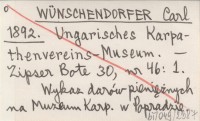 WÜNSCHENDORFER Carl
1892. Ungarisches Karpa-
thenvereins-Museum. —
Zipser Bote 30, nr 46: 1.
Wykaz darów pieniężnych
na Muzeum Karp. w Popradzie.